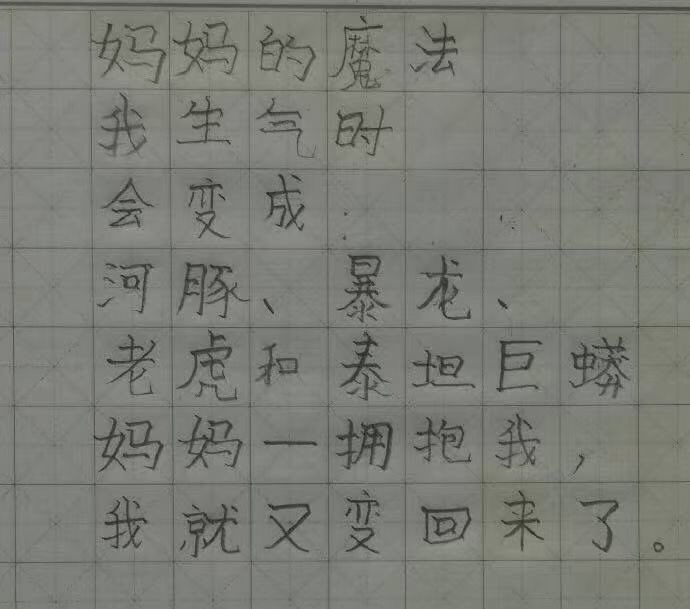 妈妈的魔法
我生气时
会变成
河豚、暴龙、
老虎和泰坦巨蟒
妈妈一拥抱我，
我就又变回来了。